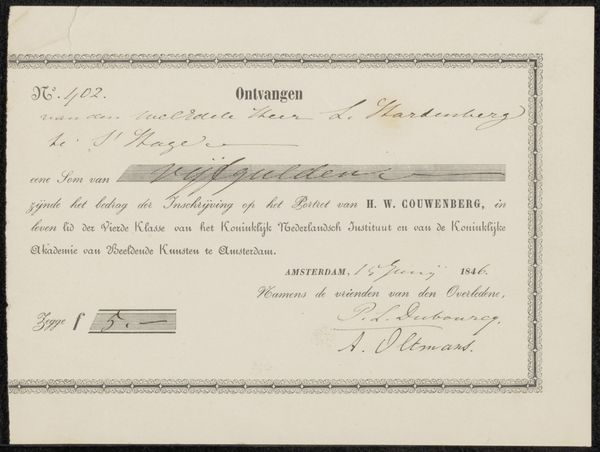 No. 402. Ontvangen
van den WelEdele Heer L. Hardenberg
te 'S Hage
eene Som van vijf gulden
zijnde het bedrag der Inschrijving op het Portret van H. W. COUWENBERG, in
leven lid der Vierde Klasse van het Koninklijk Nederlandsch Instituut en van de Koninklijke
Akademie van Beeldende Kunsten te Amsterdam.
AMSTERDAM, 15 Junij 1846.
Namens de vrienden van den Overledene,
P. L. Dubourcq.
Zegge f 5.—
A. Oltmans.